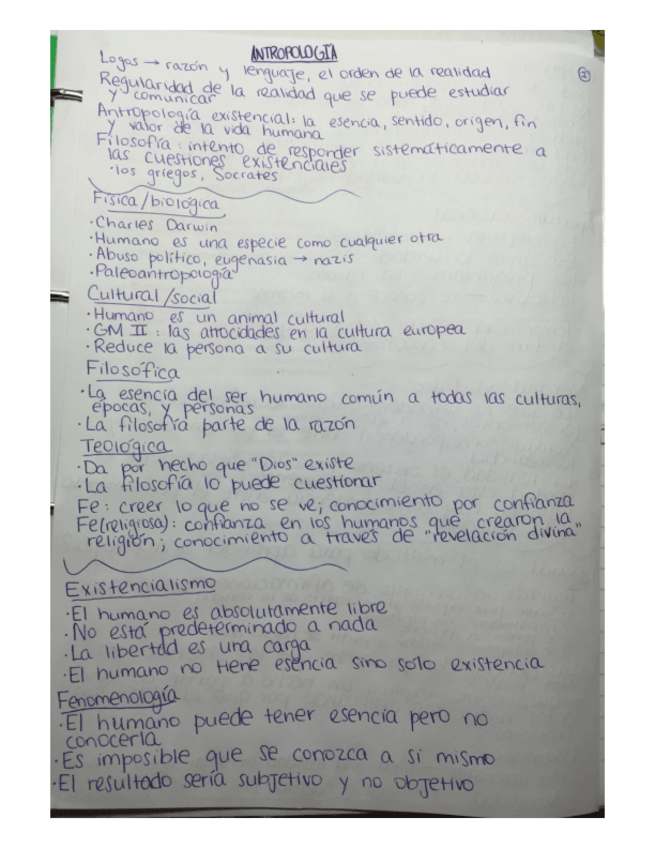 ANTROPOLOGÍA
②
Logos → razón y lenguaje, el orden de la realidad
Regularidad de la realidad que se puede estudiar
y comunicar
Antropología existencial: la esencia, sentido, origen, fin
y valor de la vida humana
Filosofía: intento de responder sistemáticamente a
las cuestiones existenciales
·los griegos, Socrates
Física/biológica
·Charles Darwin
·Humano es una especie como cualquier otra
·Abuso político, eugenasia → nazis
·Paleoantropología
Cultural/social
·Humano es un animal cultural
·GM II: las atrocidades en la cultura europea
·Reduce la persona a su cultura
Filosófica
·La esencia del ser humano común a todas las culturas,
épocas, y personas
·La filosofía parte de la razón
Teológica
·Da por hecho que "Dios" existe
·La filosofía lo puede cuestionar
Fe: creer lo que no se ve; conocimiento por confianza
Fe(religiosa): confianza en los humanos que crearon la
religión; conocimiento a través de "revelación divina"
Existencialismo
·El humano es absolutamente libre
·No está predeterminado a nada
·La libertad es una carga
·El humano no tiene esencia sino solo existencia
Fenomenología
·El humano puede tener esencia pero no
conocerla
·Es imposible que se conozca a si mismo
·El resultado sería subjetivo y no objetivo